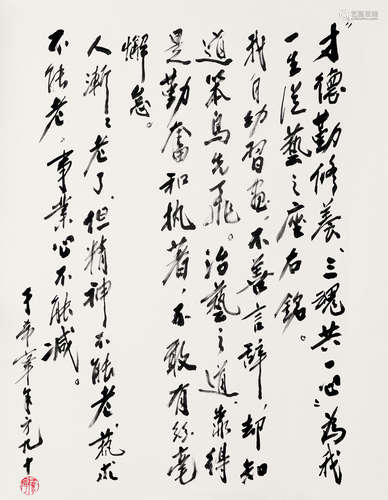 "才德勤修養、三魂共一心"為我
一生從藝之座右銘。
我自幼習畫、不善言辭、却知
道笨鳥先飛。治藝之道、靠得
是勤奮和执著、不敢有絲毫
懈怠。
人漸〻老了、但精神不能老、藝术
不能老、事業心不能減。
于希寧年方九十